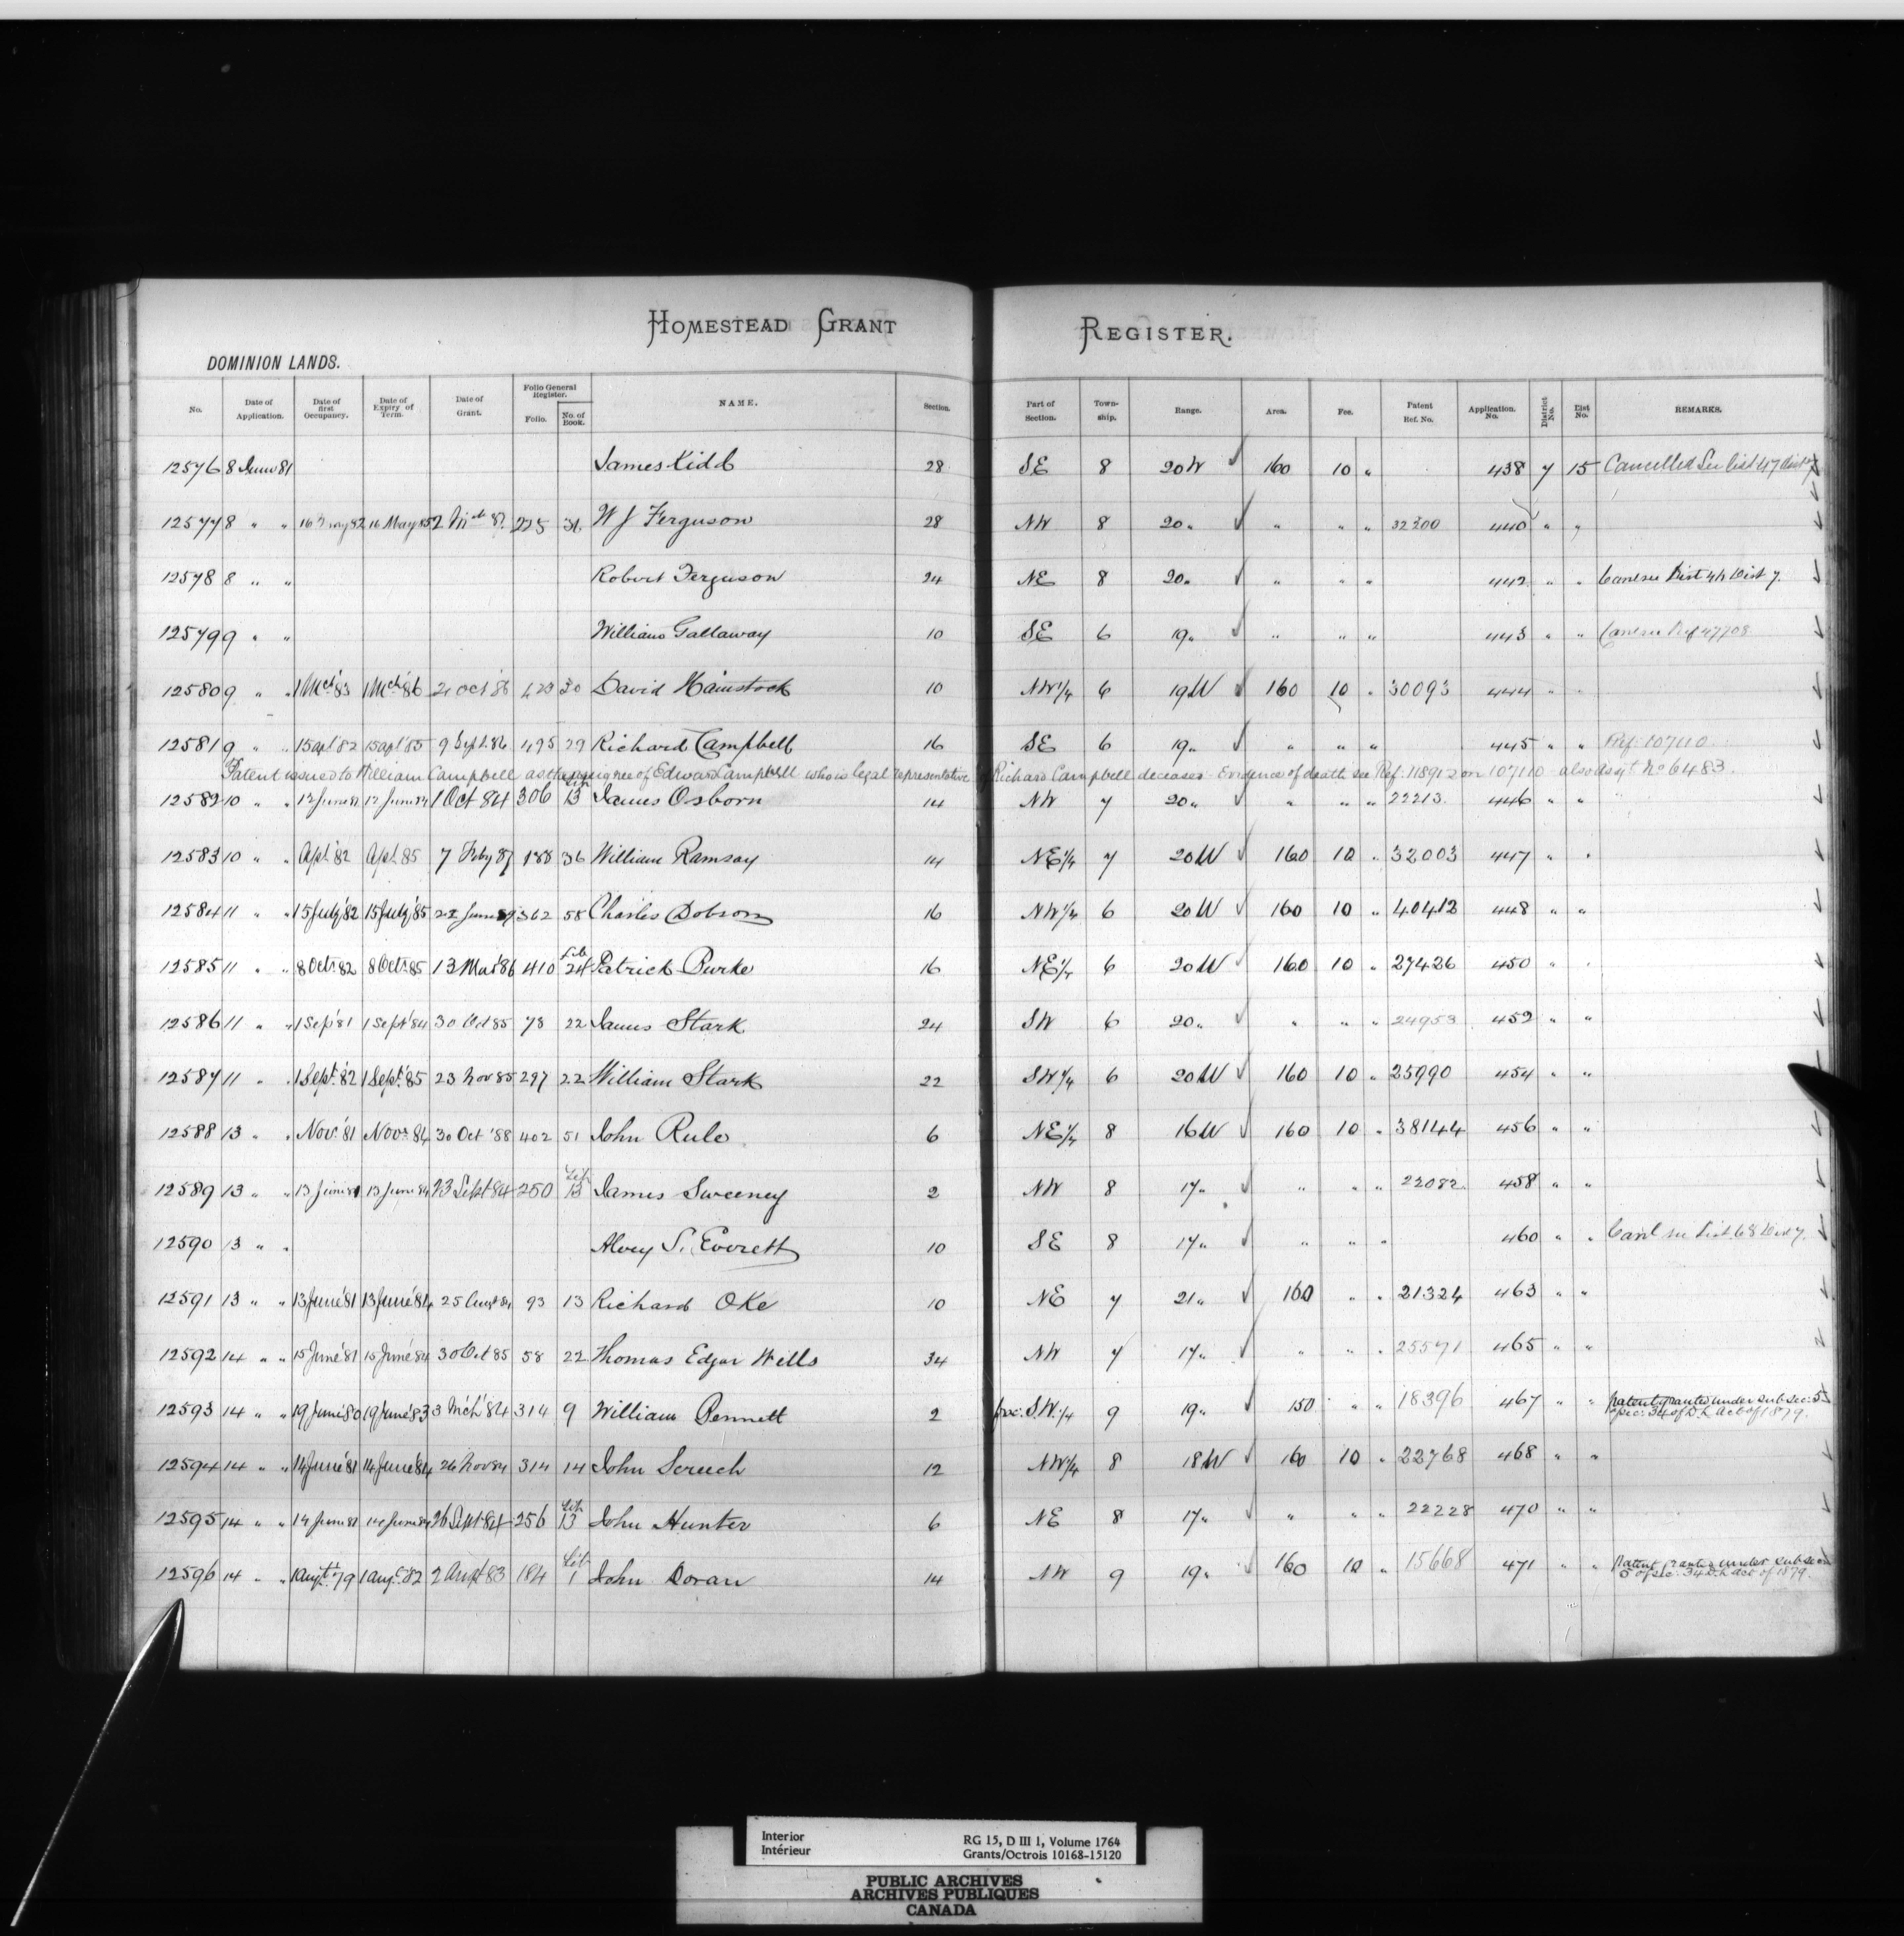 HOMESTEAD GRANT REGISTER.
DOMINION LANDS.
No. Date of Application. Date of first Occupancy. Date of Expiry of Term. Date of Grant. Folio General Register. Folio. No. of Book. NAME. Section. Part of Section. Town-ship. Range. Area. Fee. Patent Ref. No. Application. No. District No. List No. REMARKS.
12576 8 June 81 James Kidd 28 SE 8 20W 160 10 " 438 7 15 Cancelled See List 47 Dist 7
12577 8 " " 16 May 82 16 May 85 2 Mch 87 225 36 W J Ferguson 28 NW 8 20 " " " " 32200 440 " "
12578 8 " " Robert Ferguson 24 NE 8 20 " " " " 442 " " Canl see List 47 Dist 7.
12579 9 " " William Gallaway 10 SE 6 19 " " " " 443 " " Canl see Ref 47708
12580 9 " " 1 Mch '83 1 Mch '86 21 Oct '86 423 30 David Hainstock 10 NW 1/4 6 19W 160 10 " 30093 444 " "
12581 9 " " 15 apl '82 15 apl '85 9 Sept. 86 495 29 Richard Campbell 16 SE 6 19 " " " " 445 " " Ref. 107110
Patent issued to William Campbell as the assignee of Edward Campbell who is legal representative of Richard Campbell deceased - Evidence of death see Ref. 118912 on 107110 - also Assgt No 6483.
12582 10 " " 12 June 81 12 June 84 1 Oct 84 306 Lib 13 James Osborn 14 NW 7 20 " " " " 22213 446 " "
12583 10 " " Apl. '82 Apl. 85 7 Feby 87 188 36 William Ramsay 14 NE 1/4 7 20W 160 10 " 32003 447 " "
12584 11 " " 15 July '82 15 July '85 22 June 89 362 58 Charles Dobson 16 NW 1/4 6 20W 160 10 " 40412 448 " "
12585 11 " " 8 Oct. 82 8 Oct. 85 13 Mar '86 410 Lib 24 Patrick Burke 16 NE 1/4 6 20W 160 10 " 27426 450 " "
12586 11 " " 1 Sep '81 1 Sept '84 30 Oct 85 78 22 James Stark 24 SW 6 20 " " " " 24953 452 " "
12587 11 " " 1 Sept. '82 1 Sept. '85 23 Nov 85 297 22 William Stark 22 SW 1/4 6 20W 160 10 " 25990 454 " "
12588 13 " " Nov. '81 Nov. 84 30 Oct '88 402 51 John Rule 6 NE 1/4 8 16W 160 10 " 38144 456 " "
12589 13 " " 13 June 81 13 June 84 23 Sept 84 250 Lib 13 James Sweeney 2 NW 8 17 " " " " 22082 458 " "
12590 13 " " Alvey S. Everett 10 SE 8 17 " " " " 460 " " Canl see List 68 Dist 7.
12591 13 " " 13 June '81 13 June '84 25 Augt 84 93 13 Richard Oke 10 NE 7 21 " 160 " " 21324 463 " "
12592 14 " " 15 June '81 15 June '84 30 Oct 85 58 22 Thomas Edgar Wills 34 NW 7 17 " " " " 25571 465 " "
12593 14 " " 19 June '80 19 June '83 3 Mch '84 314 9 William Bennett 2 frac. S.W. 1/4 9 19 " 150 " " 18396 467 " " patent granted under sub sec: 5
of sec. 34 of D. L Act of 1879.
12594 14 " " 14 June '81 14 June '84 26 Nov 84 314 14 John Scruch 12 NW 1/4 8 18W 160 10 " 22768 468 " "
12595 14 " " 14 June 81 14 June 84 26 Sept 84 256 Lib 13 John Hunter 6 NE 8 17 " " " " 22228 470 " "
12596 14 " " 1 Augt. '79 1 Aug. 82 2 Augt 83 184 Lib 1 John Doran 14 NW 9 19 " 160 10 " 15668 471 " " Patent granted under sub sec
5 of sec. 34 D. L Act of 1879.
Interior RG 15, D III 1, Volume 1764
Intérieur Grants/Octrois 10168-15120
PUBLIC ARCHIVES
ARCHIVES PUBLIQUES
CANADA